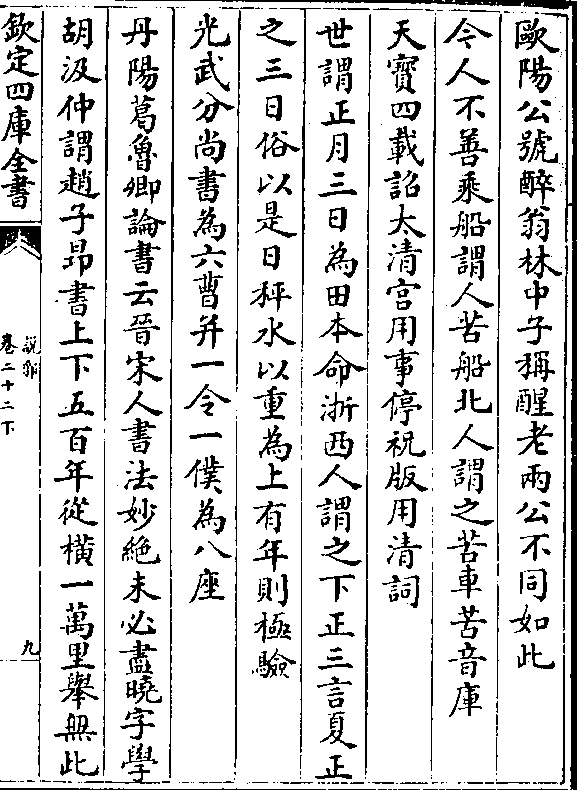 歐陽公號醉翁林中子稱醒老兩公不同如此
今人不善乘船謂人苦船北人謂之苦車苦音庫
天寶四載詔太清宫用事停祝版用清詞
世謂正月三日為田本命浙西人謂之下正三言夏正
之三日俗以是日秤水以重為上有年則極驗
光武分尚書為六曹并一令一僕為八座
丹陽葛魯卿論書云晉宋人書法妙絶未必盡曉字學
胡汲仲謂趙子昂書上下五百年從横一萬里舉無此
欽定四庫全書
說郛
卷二十二下
九